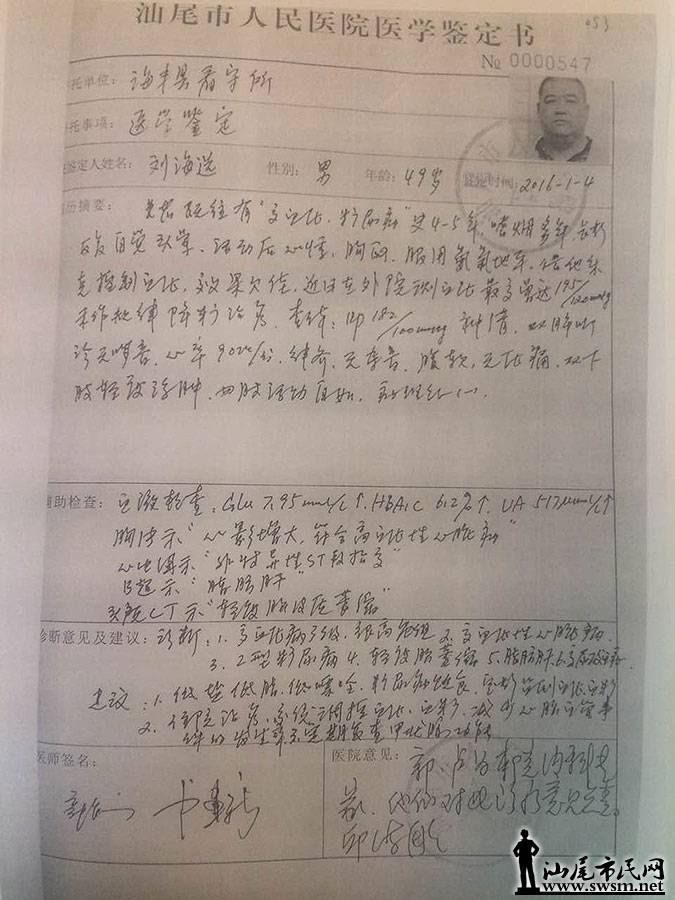 汕尾市人民医院医学鉴定书
053
№ 0000547
托单位: 海丰县看守所
托事项: 医学鉴定
鉴定人姓名: 刘海送 性别: 男 年龄: 49岁 鉴定时间: 2016-1-4
历摘要: 患者既往有"高血压,糖尿病"史4-5年,嗜烟多年,长期
反复自觉头晕、活动后心悸,胸闷,服用氨氯地平、倍他乐
克控制血压,效果欠佳,近日在外院测血压最高曾达195/120mmHg
未作规律降糖治疗,查体:BP 182/100mmHg 神清,双肺听
诊无啰音,心率90次/分,律齐,无杂音,腹软,无压痛,双下
肢轻度浮肿,四肢活动自如,病理征(-)
辅助检查: 血液检查:Glu 7.95mmol/L↑,HbA1C 6.2%↑,UA 517μmol/L↑
胸片示"心影增大,符合高血压性心脏病"
心电图示"非特异性ST段抬高"
B超示"脂肪肝"
头颅CT示"轻度脑皮层萎缩"
诊断意见及建议: 诊断:1.高血压病3级,极高危组 2.高血压性心脏病
3.2型糖尿病 4.轻度脑萎缩 5.脂肪肝 6.高尿酸血症
建议:1.低盐低脂,低嘌呤,糖尿病饮食,定期监测血压血糖
2.住院治疗,系统调控血压,血糖,减少心脑血管事
件的发生
医师签名:
医院意见:
汕尾市民网
www.swsm.net